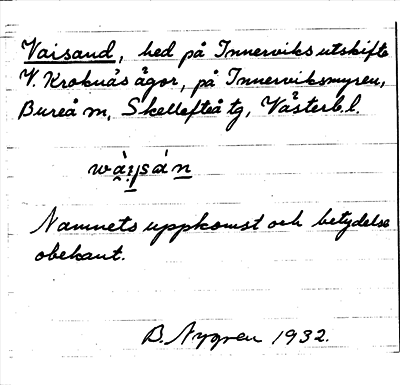 Vaisand, hed på Innerviks utskifte
V. Kroknäs ägor, på Innerviksmyren,
Bureå m, Skellefteå tg, Västerb. l.
Namnets uppkomst och betydelse
obekant.
B. Nygren 1932.